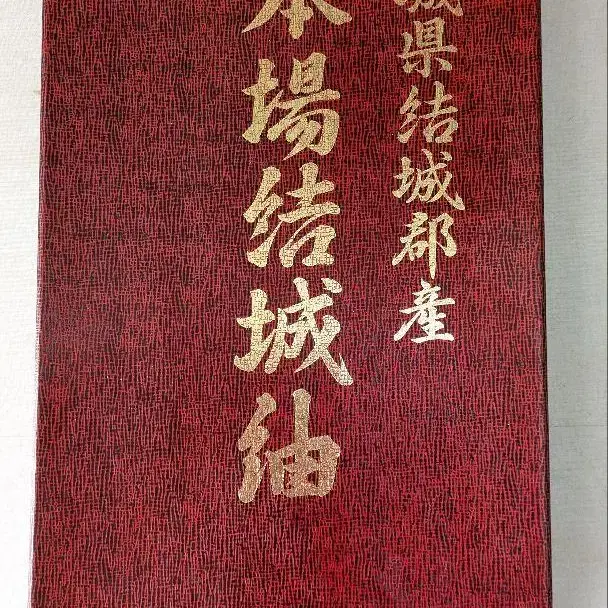 城県結城郡産
本場結城紬